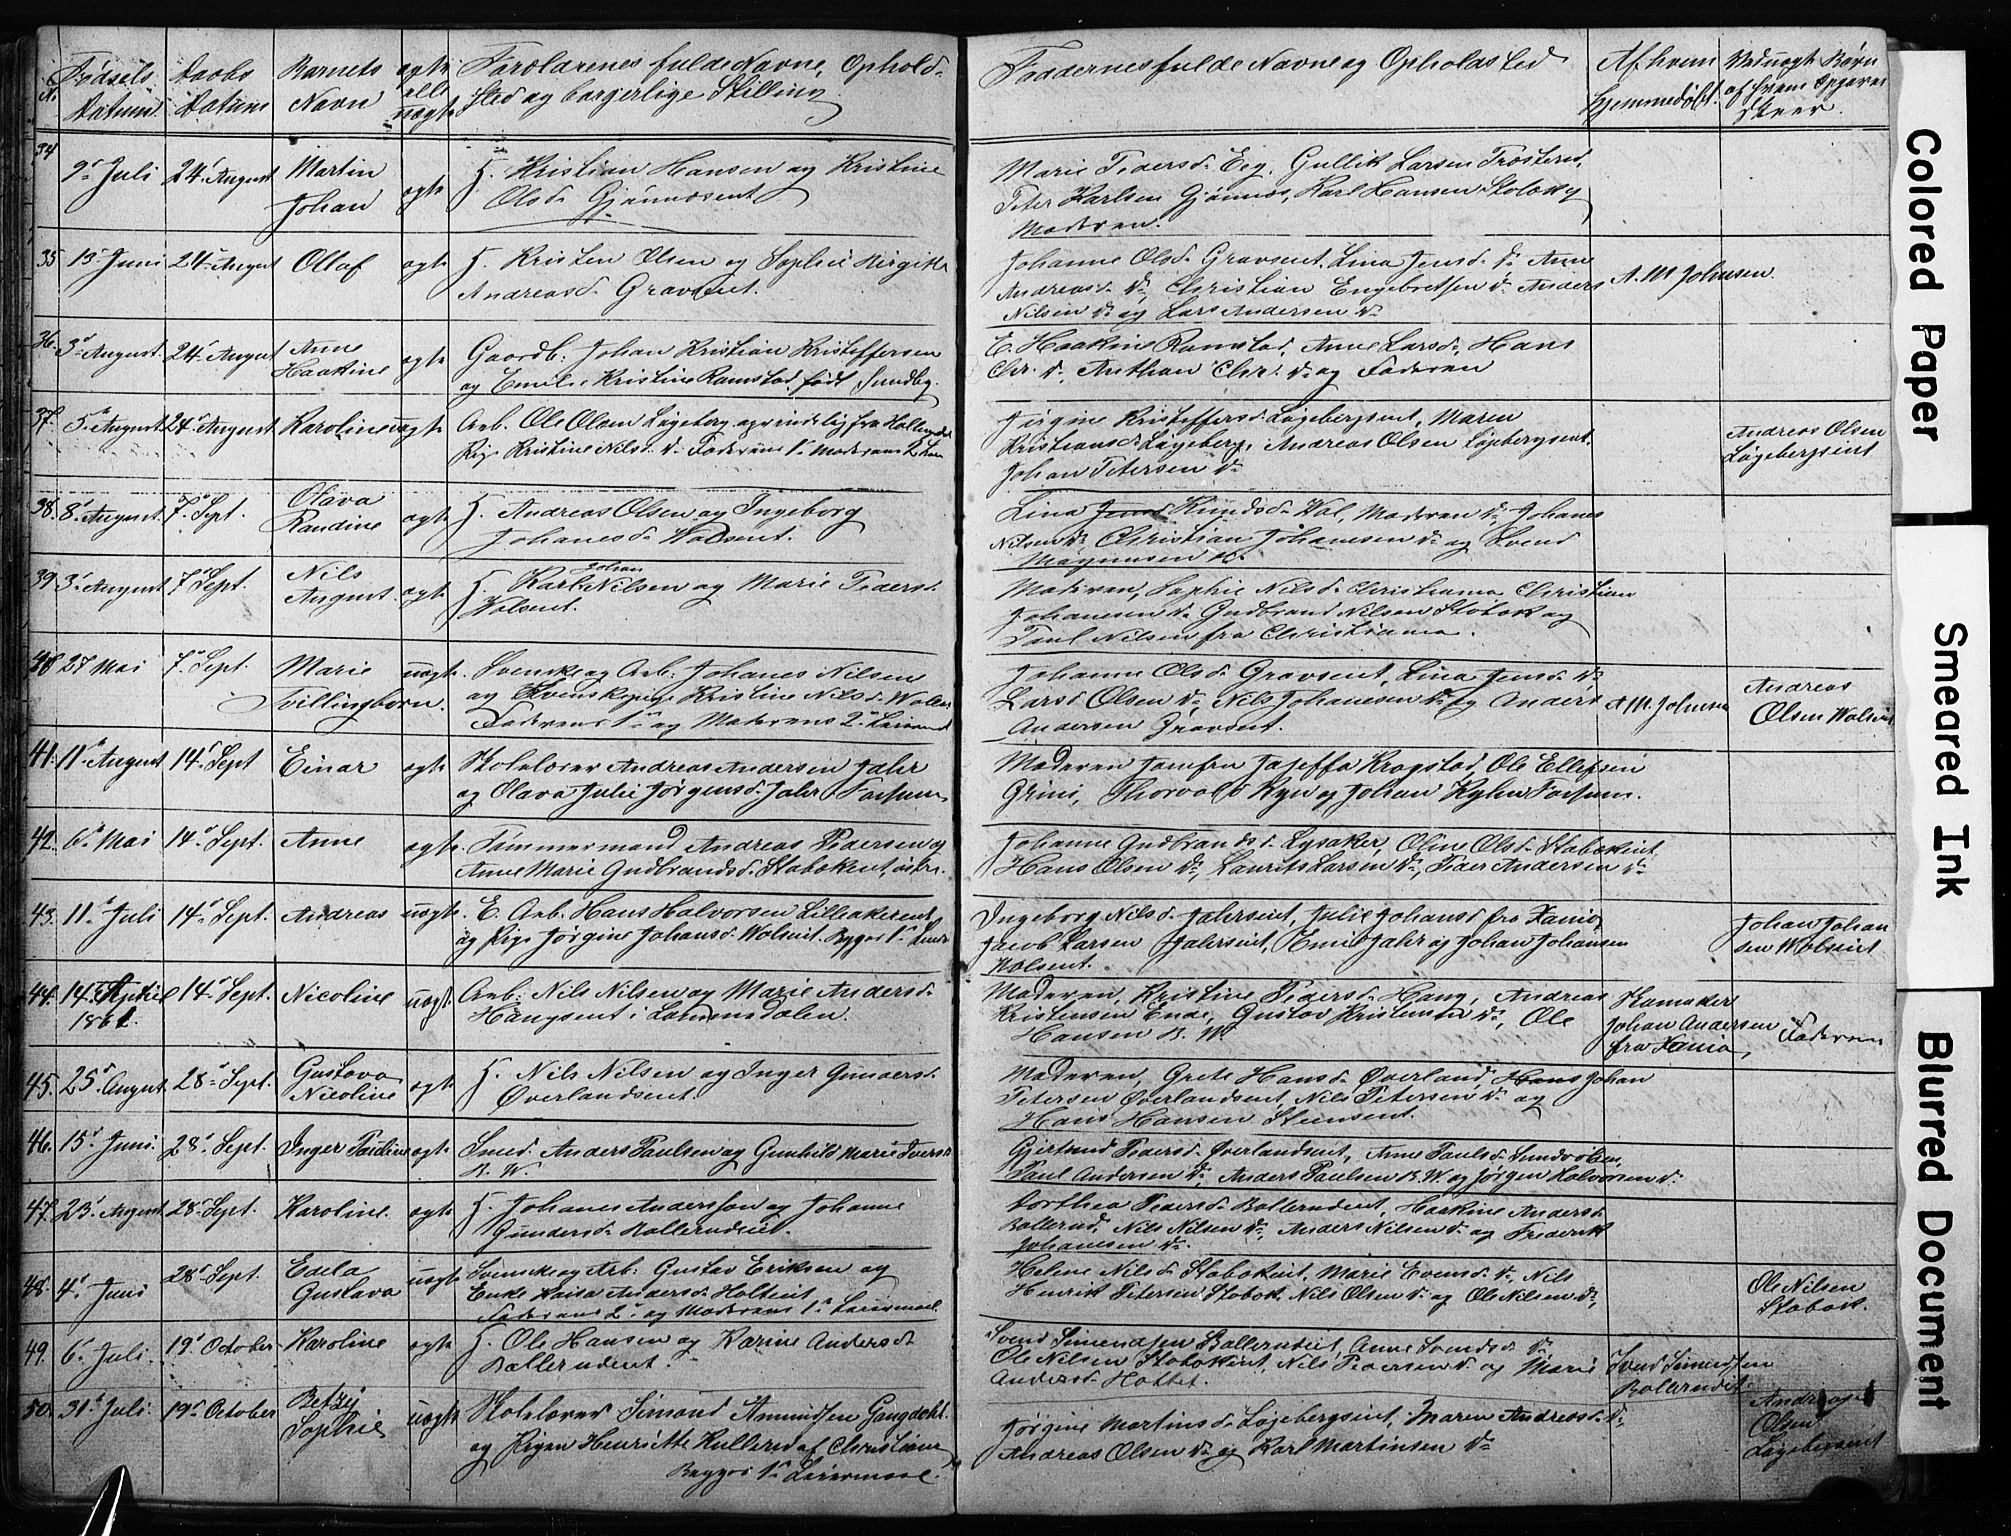 No.
Fødsels
Datum
Daabs
Datum
Barnets
Navn
ægte
ell.
uægte
Forældrenes fulde Navne, Ophold-
sted og borgerlige Stilling
Faddernes fulde Navne og Opholdsted
Af hvem
hjemmedøbt.
Ved uægte Børn
af hvem Opgaven
skeer.
34
9de Juli
24. August
Martin
Johan
ægte
H. Kristian Hansen og Kristine
Olsd. Gjønnæsent
Marie Pedersd. Eeg, Gullik Larsen Trosterud,
Peter Karlsen Gjønnæs, Karl Hansen Stabæk og
Moderen.
35
15. Juni
24. August
Ollaf
ægte
H. Kristen Olsen og Sophie Birgitte
Andreasd. Gravsent.
Johanne Olsd. Gravsent. Lina Jensd. do. Anne
Andreasd. do. Christian Engebretsen do. Anders
Nilsen do. og Lars Andersen do.
A. M. Johnsen
36.
3. August.
24. August
Anne
Haakine
ægte
Gaardb. Johan Kristian Kristoffersen
og Emilie Kristine Ramstad, født Sundby.
E. Haakine Ramstad, Anne Larsd., Hans
Chr. do. Anthon Chr. do. og Faderen
37.
5. August
24. August
Karoline
uægte
Arb. Ole Olsen Løgeberg
Pige Kristine Nilsd. do. Faderens 1. Moderens 2.
Jørgine Kristoffersd. Løgebergsent, Maren
Kristiansd. Løgeberg, Andreas Olsen Løgebergsent.
Johan Petersen do.
Andreas Olsen
Løgebergseint
38.
8. August.
7. Sept.
Olava
Randine
ægte
H. Andreas Olsen og Ingeborg
Johanesd. Walsent.
Lina Jensd Knudsd. Wal, Moderen do. Johanes
Nilsen do. Christian Johannesen do. og Svend
Magnusen do.
39
3. August
7. Sept.
Nils
August.
ægte
Johan
H. Karl Nilsen og Marie Pedersd.
Walsent.
Moderen, Sophie Nilsd. Christiania Christian
Johannesen do. Gudbrand Nilsen Stabæk og
Paul Nilsen fra Christiania.
40
27 Mai
7. Sept.
Marie
Tvillingbarn.
uægte.
Svenske og Arb. Johanes Nilsen
og Svenskepige Kristine Nilsd. Walsent
Faderens 1. og Moderens 2. Leiermaal
Johanne Olsd. Gravsent, Lina Jensd. do.
Lars Olsen do. Nils Johanesen do. og Anders
Andersen Gravsent.
A. M. Johnsen
Andreas
Olsen Walsent
41.
11. August
14. Sept
Einar
ægte
Skolelærer Andreas Andersen Jahr
og Olava Julie Jørgensd. Jahr Fossum
Moderen Jomfru Josefha Krogstad, Ole Ellefsen
Grini, Thorvald Ryen og Johan Kylen Fossum.
42.
6. Mai
14. Sept.
Anne
ægte
Tømmermand Andreas Pedersen og
Anne Marie Gudbrandsd. Stabækent,
Johanne Gudbrandsd. Lysaker, Oline Olsd. Stabækent
Hans Olsen do., Laurits Larsen do., Peder Andersen do.
43.
11. Juli
14. Sept.
Andreas
uægte
E. Arb. Hans Halvorsen Lilleakerent
og Pige Jørgine Johansd. Wolseint. Begges 1.
Ingeborg Nilsd. Jahrseint, Julie Johansd. fra Xania,
Jacob Larsen Jahrseint, Emil Jahr og Johan Johansen
Walsent.
Johan Johan
sen Wolseint
44.
14. April
1862.
14. Sept.
Nicoline
uægt.
Arb. Nils Nilsen og Marie Andersd.
Haugsent i Lommedalen.
Moderen, Kristine Pedersd. Haug, Andreas
Kristensen Ende, Gustav Kristensen do., Ole
Hansen B. W.
Skomaker
Johan Andersen
fra Xania,
Faderen
45.
25. August
28. Sept.
Gustava
Nicoline
ægte
H. Nils Nilsen og Inger Gunersd.
Øverlandsent.
Moderen, Grete Hansd. Øverland Hans Johan
Petersen Øverlandsent, Nils Petersen do. og
Hans Hansen Steinsent.
46.
15. Juni.
28. Sept.
Inger Pauline
ægte
Smed. Anders Paulsen og Gunhild Marie Iversd.
B. W.
Gjertrud Pedersd. Øverlandsent, Anne Paulsd. Sundvolden,
Paul Andersen do., Anders Paulsen B. W. og Jørgen Halvorsen do.
47.
23. August
28. Sept.
Karoline.
ægte
H. Johanes Andersson og Johanne
Gundersd. Ballerudeiet.
Dorthea Pedersd. Ballerudent, Haakine Andersd.
Ballerud, Nils Nilsen do., Anders Nilsen do. og Frederik
Johanesen do.
48.
4. Juni
28. Sept.
Edela
Gustava
uægte
Svenske og Arb. Gustav Eriksen og
Enke Kaisa Andersd. Holteiet
Faderens 2. og Moderens 1. Leiermaal
Helene Nilsd. Stabækeiet, Marie Evensd. do. Nils
Henrik Petersen Stabæk. Nils Olsen do. og Ole Nilsen do.
Ole Nilsen
Stabæk.
49.
6. Juli.
19. October
Karoline
ægte
H. Ole Hansen og Karine Andersd.
Ballerudent.
Svend Simensen Ballerudeiet, Anne Svendsd. do.
Ole Nilsen Stabækent, Nils Pedersen do. og Marie
Andersd. Holtet.
Svend Simensen
Ballerudeiet.
50.
31. Juli.
19. October
Betzy
Sophie
uægte
Skolelærer Simond Amundsen Gangdahl
og Pigen Henriette Kullerud af Christiania
Begges 1. Leiermaal.
Jørgine Martinsd. Løgebergseint, Maren Andreasd. do.
Andreas Olsen do. og Karl Martinsen do.
Andreas
Olsen
Løgebergseint
Colored Paper
Smeared Ink
Blurred Document